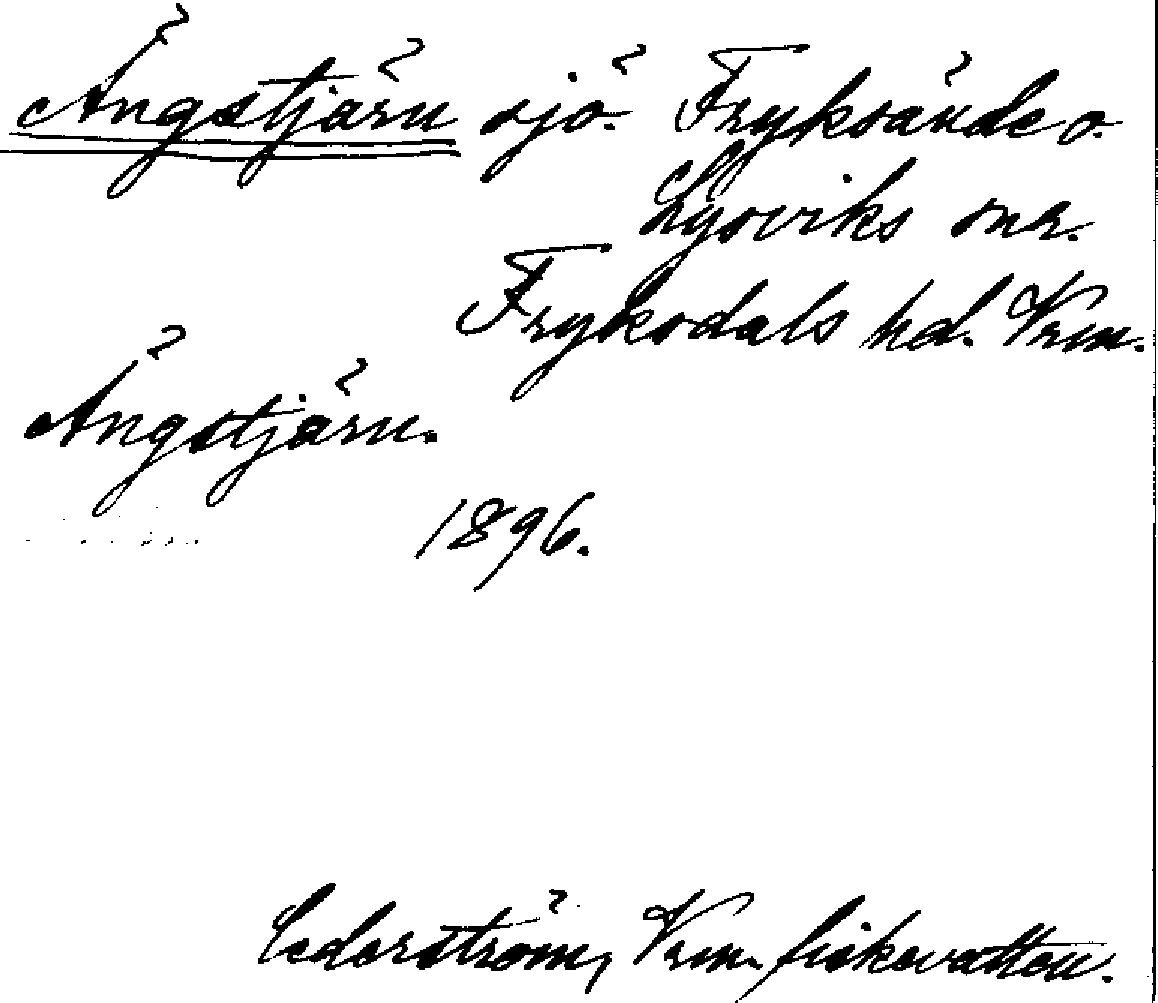 Ängstjärn sjö. Fryksände o.
Lysviks snr.
Fryksdals hd. Vrm.
Ängstjärn.
1896.
Cederström, Vrm. fiskevatten.